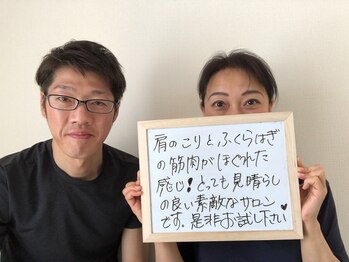 肩のこりと、ふくらはぎ
の筋肉がほぐれた
感じ!とっても見晴らし
の良い素敵なサロン
です。是非お試し下さい♥